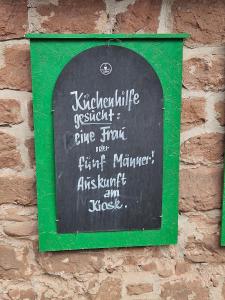 Küchenhilfe
gesucht:
eine Frau
oder
fünf Männer!
Auskunft
am
Kiosk.